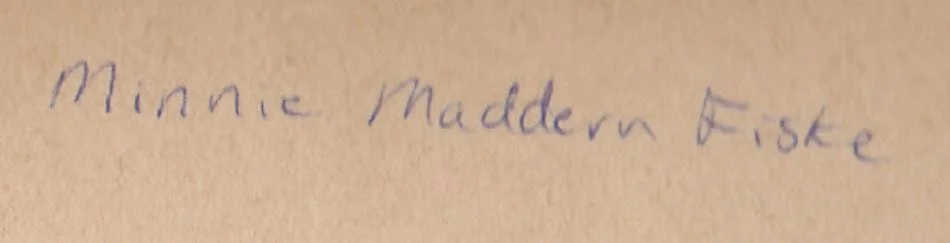 Minnie Maddern Fiske